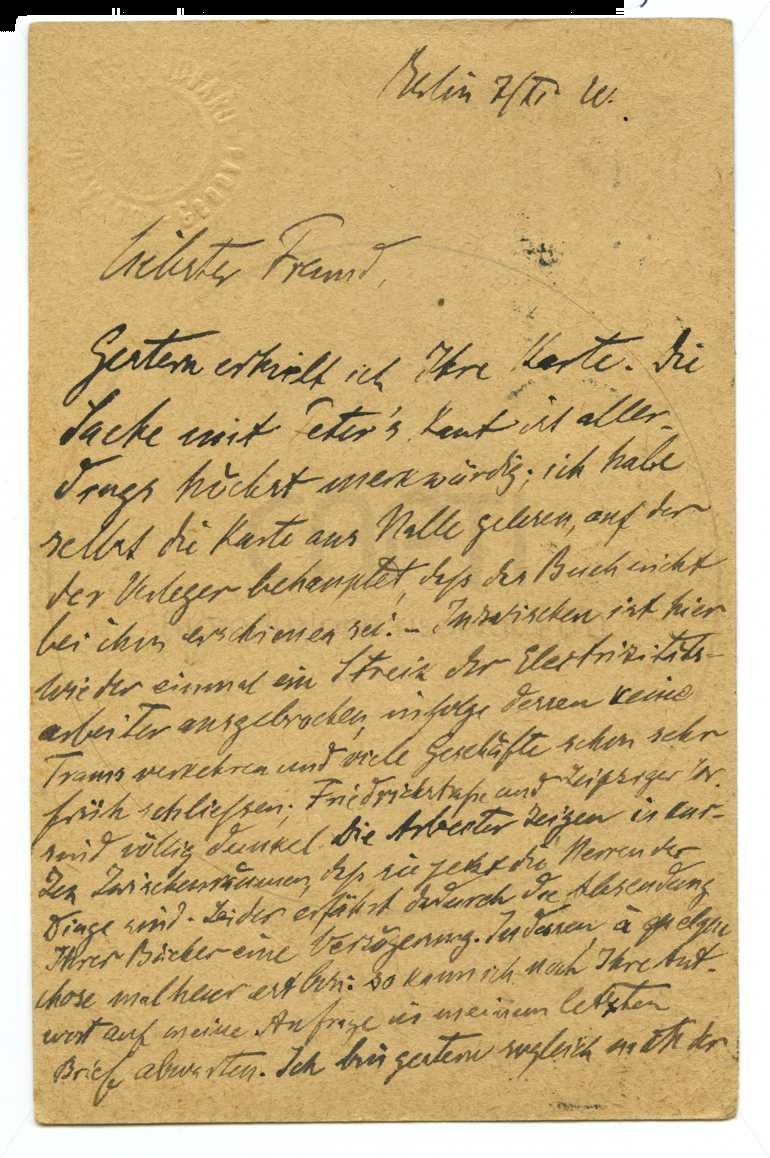 Berlin 7/XI 20.
Liebster Freund,
Gestern erhielt ich Ihre Karte. Die
Sache mit Peter's Kant ist aller-
dings höchst merkwürdig; ich habe
selbst die Karte aus Halle gelesen, auf der
der Verleger behauptet, daß das Buch nicht
bei ihm erschienen sei. – Inzwischen ist hier
wieder einmal ein Streik der Electrizitäts-
arbeiter ausgebrochen, infolge dessen keine
Trams verkehren und viele Geschäfte schon sehr
früh schließen; Friedrichstraße und Leipziger Str.
sind völlig dunkel. Die Arbeiter zeigen in kur-
zen Zwischenräumen, daß sie jetzt die Herren der
Dinge sind. Leider erfährt dadurch die Absendung
Ihrer Bücher eine Verzögerung. Indessen, à quelque
chose malheur est bon: so kann ich noch Ihre Ant-
wort auf meine Anfrage in meinem letzten
Brief abwarten. Ich bin gestern sogleich mit der